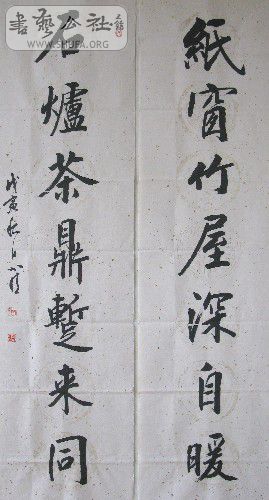 紙窗竹屋深自暖
石爐茶鼎蹔来同
戊寅秋
書藝公社
WWW.SHUFA.ORG